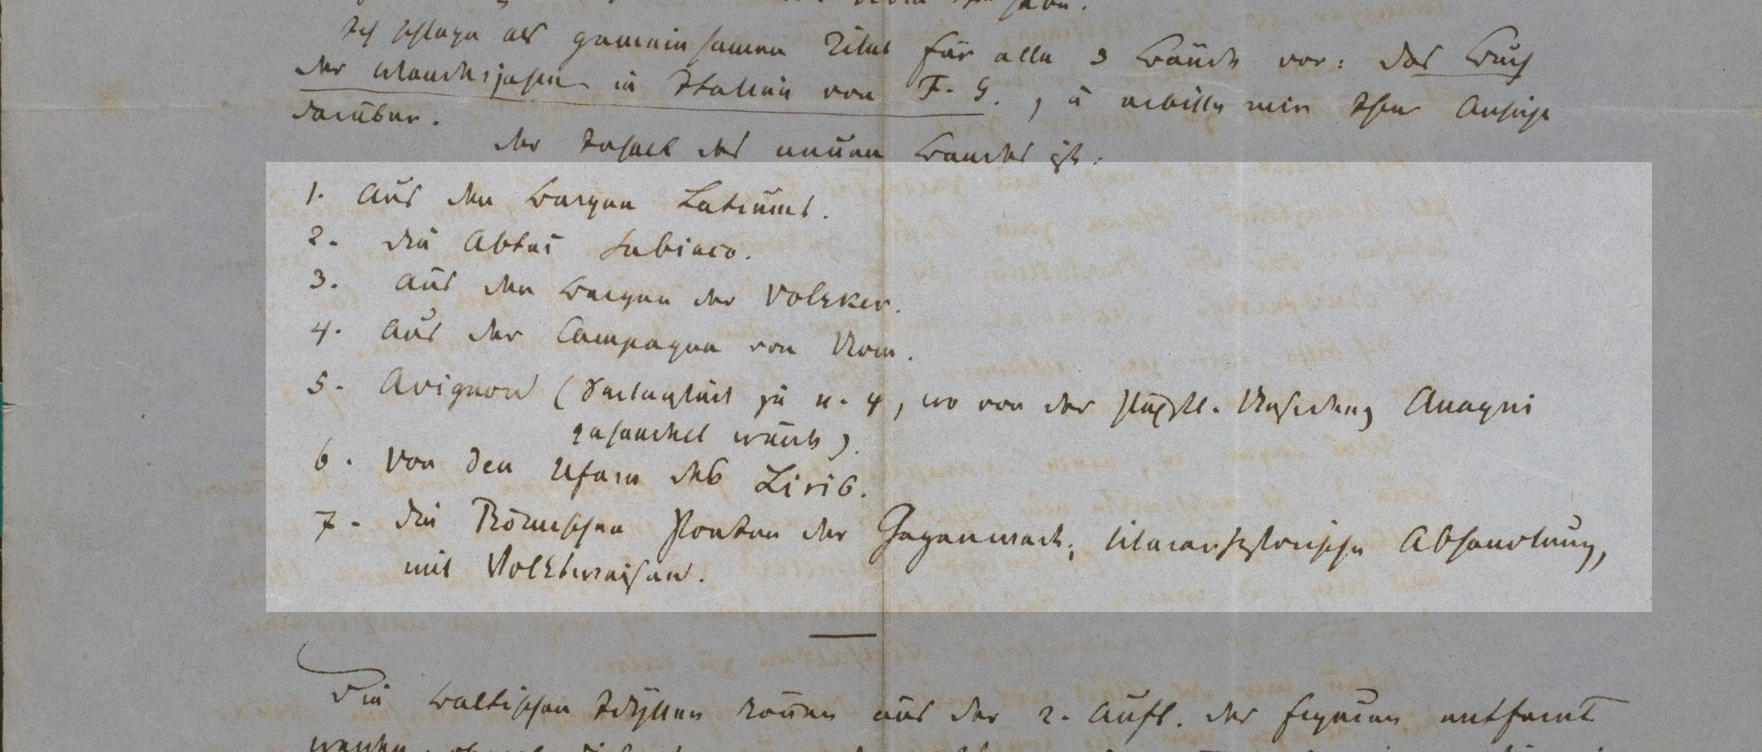 Ich schlage als gemeinsamen Titel für alle 3 Bände vor: Das Buch
der Wanderjahre in Italien von F. G., u erbitte mir Ihre Ansicht
darüber.
Der Inhalt des neuen Bandes ist:
1. Aus den Bergen Latiums.
2. Die Abtei Subiaco.
3. Aus den Bergen der Volsker.
4. Aus der Campagna von Rom.
5. Avignon (Seitenstück zu n. 4, wo von der päpstl. Residenz Anagni
gehandelt wurde).
6. Von den Ufern des Liris.
7. Die Römischen Poeten der Gegenwart, literarhistorische Abhandlung,
mit Volksweisen.
Die baltischen Idyllen können aus der 2. Aufl. der Figuren entfernt